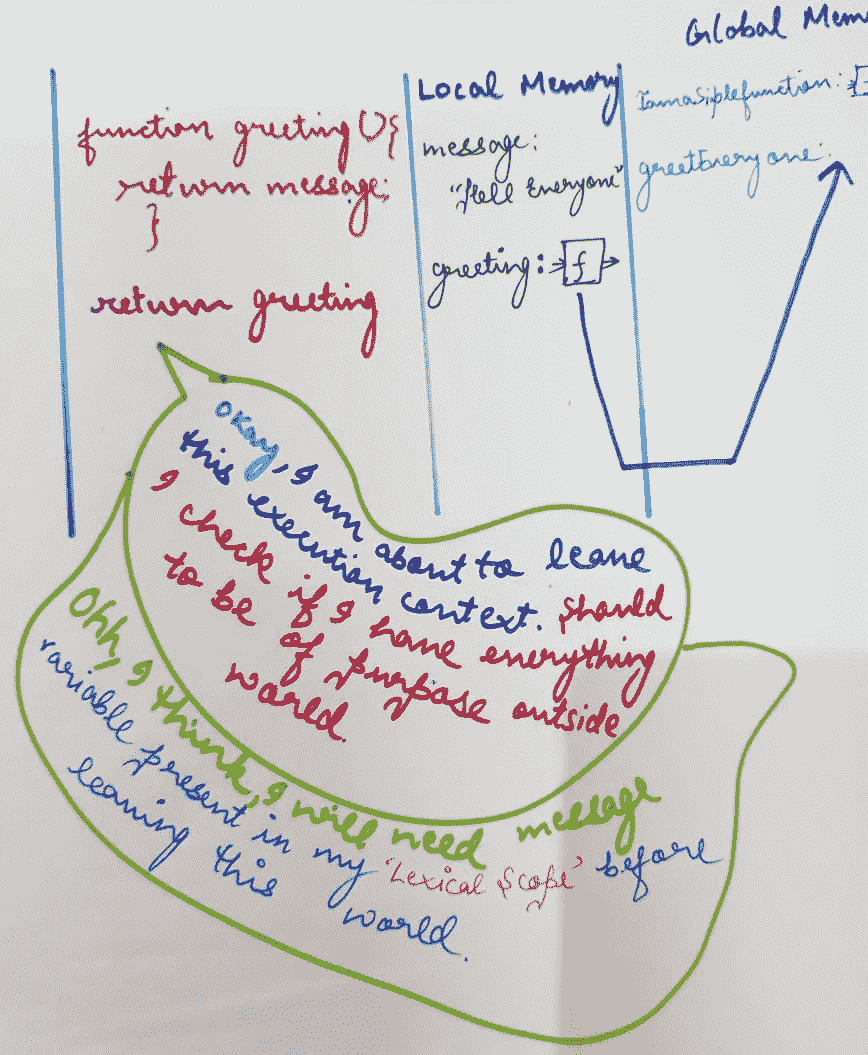 Global Mem
Local Memory
function greeting(){
return message;
}
return greeting
message:
"Hell Everyone"
greeting: f
Iamasiplefunction:
greetEveryone:
Okay, I am about to leave
this execution context. Should
I check if I have everything
to be of purpose outside
world.
Ohh, I think, I will need message
variable present in my 'Lexical Scope' before
leaving this world.